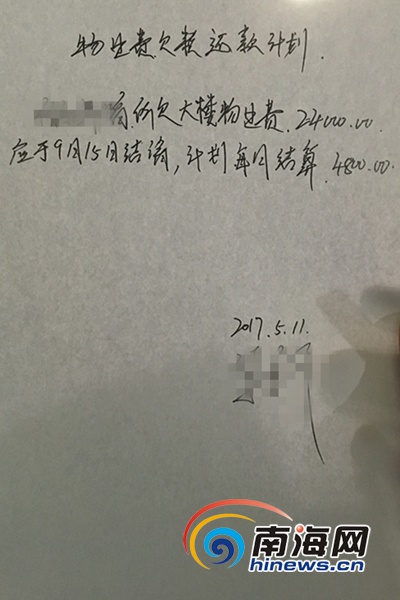 物业费欠款还款计划.
所欠大楼物业费.24000.00.
应于9月15日结清,计划每月结算.4800.00.
2017.5.11.
南海网
hinews.cn